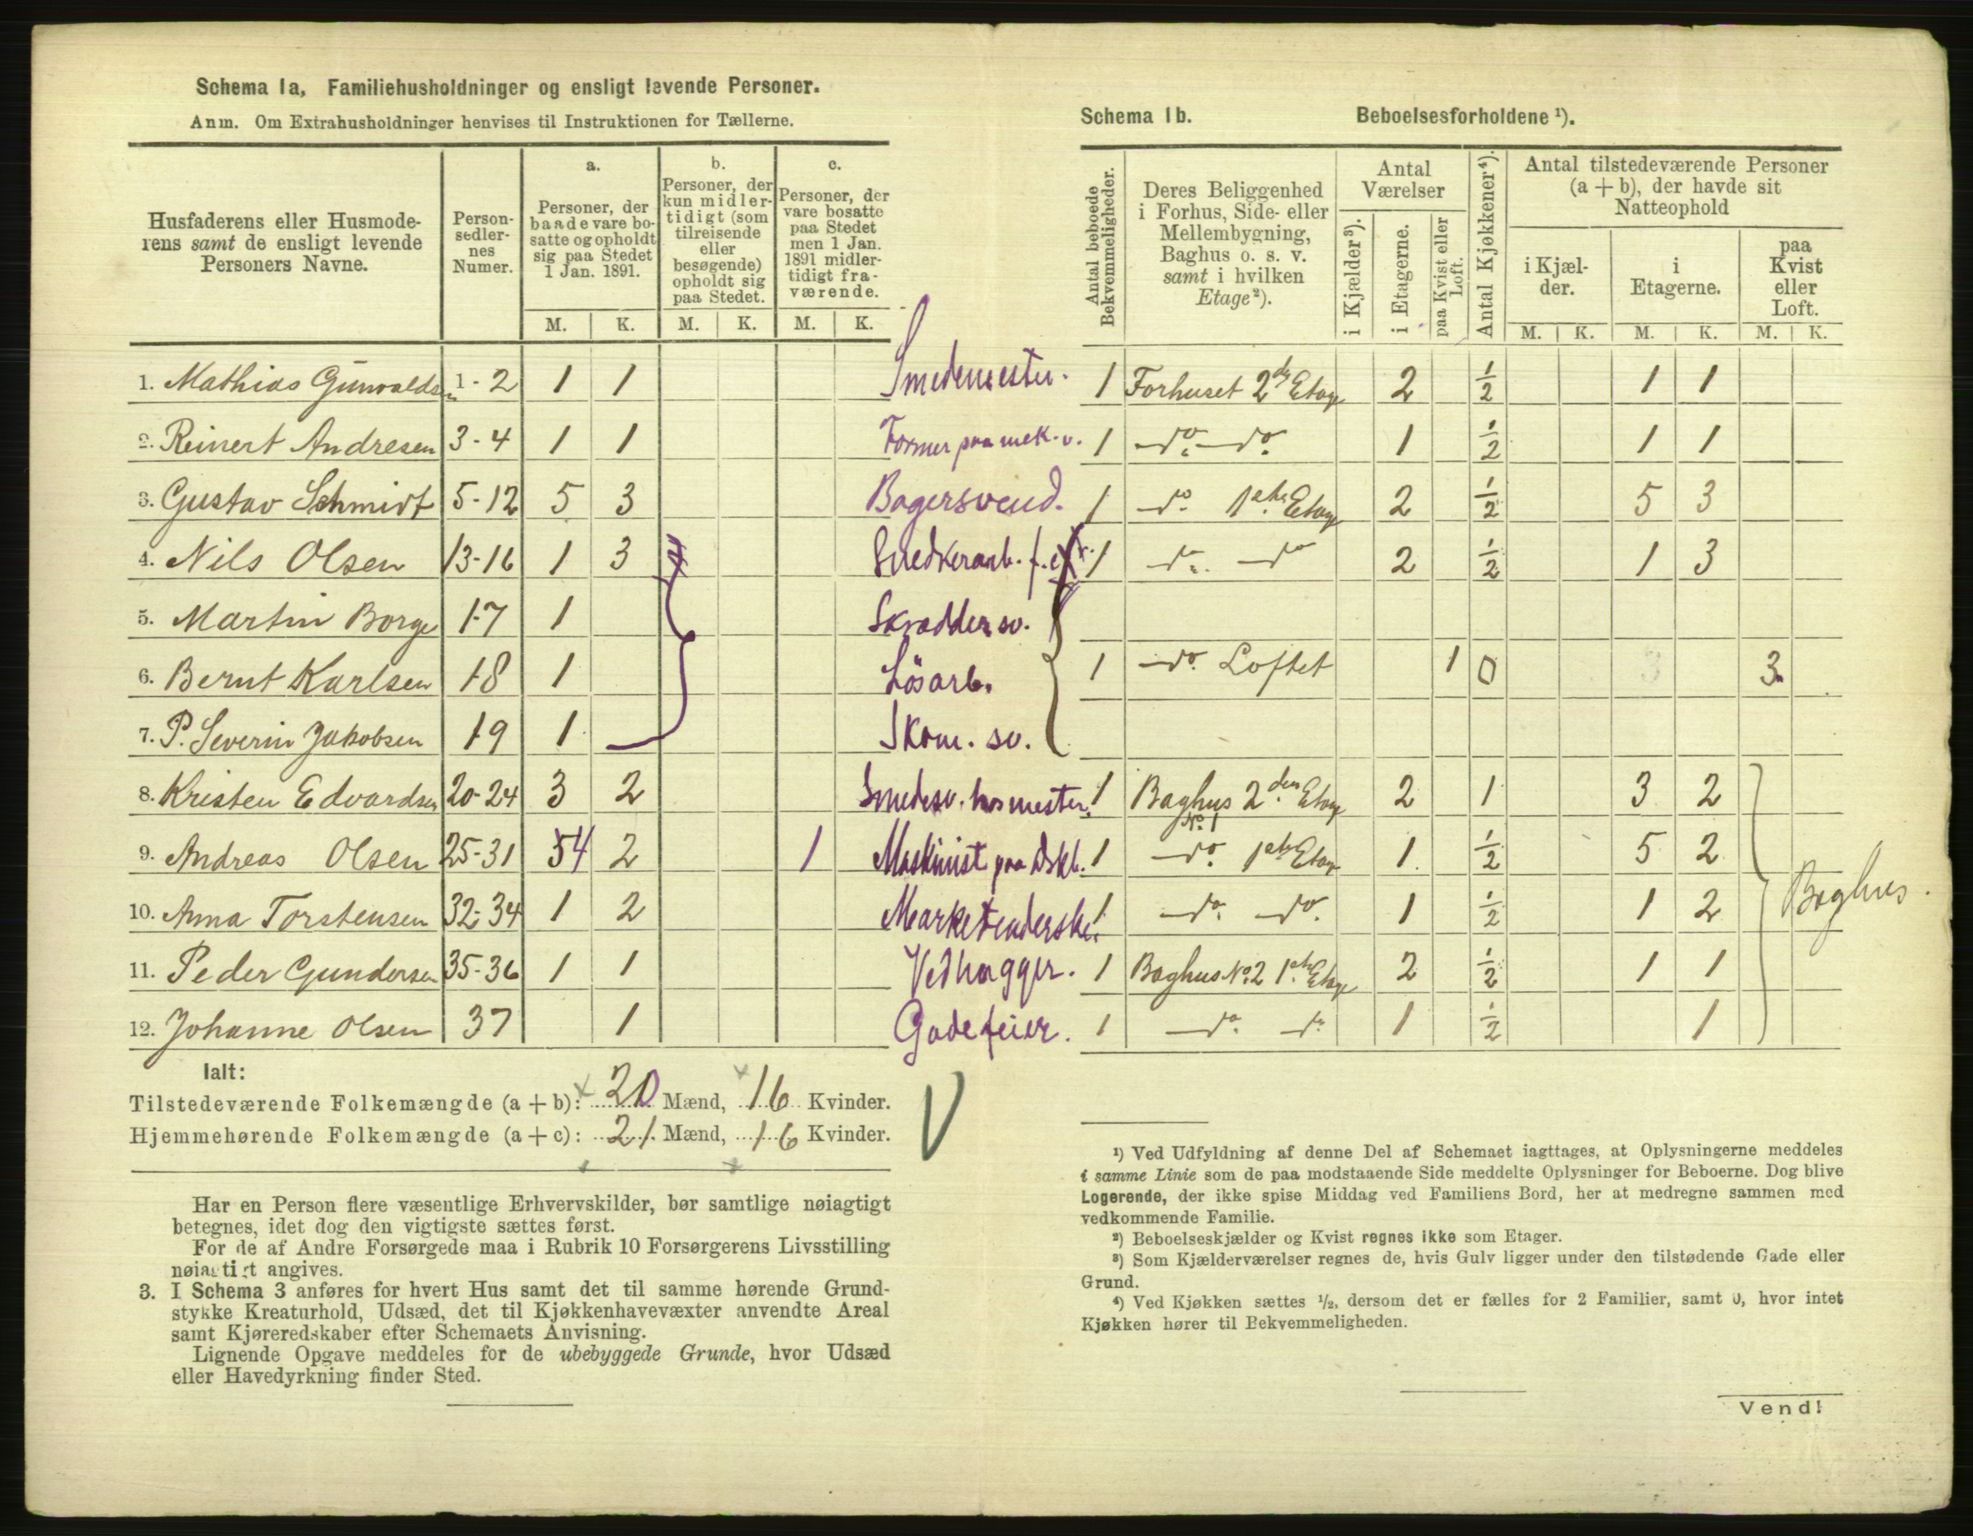 Schema 1a, Familiehusholdninger og ensligt levende Personer.
Anm. Om Extrahusholdninger henvises til Instruktionen for Tællerne.
Husfaderens eller Husmode-
rens samt de ensligt levende
Personers Navne.
Person-
sedler-
nes
Numer.
a.
Personer, der
baade vare bo-
satte og opholdt
sig paa Stedet
1 Jan. 1891.
b.
Personer, der
kun midler-
tidigt (som
tilreisende
eller
besøgende)
opholdt sig
paa Stedet.
c.
Personer, der
vare bosatte
paa Stedet
men 1 Jan.
1891 midler-
tidigt fra-
værende.
M. K. M. K. M. K.
1. Mathias Gunvaldsen 1-2 1 1 Smedemester.
2. Reinert Andresen 3-4 1 1 Former paa mek. v.
3. Gustav Schmidt 5-12 5 3 Bagersvend.
4. Nils Olsen 13-16 1 3 Snedkerarb. f.
5. Martin Borge 17 1 Skrædder sv.
6. Bernt Karlsen 18 1 Løsarb.
7. P. Severin Jakobsen 19 1 Skom. sv.
8. Kristen Edvardsen 20-24 3 2 Smedesv. hos mester.
9. Andreas Olsen 25-31 54 2 1 Maskinist paa Dskb.
10. Anna Torstensen 32-34 1 2 Marketenderske.
11. Peder Gundersen 35-36 1 1 Vedhugger.
12. Johanne Olsen 37 1 Gadefeier.
Ialt:
Tilstedeværende Folkemængde (a + b): 20 Mænd, 16 Kvinder.
Hjemmehørende Folkemængde (a + c): 21 Mænd, 16 Kvinder.
Har en Person flere væsentlige Erhvervskilder, bør samtlige nøiagtigt
betegnes, idet dog den vigtigste sættes først.
For de af Andre Forsørgede maa i Rubrik 10 Forsørgerens Livsstilling
nøiagtigt angives.
3. I Schema 3 anføres for hvert Hus samt det til samme hørende Grund-
stykke Kreaturhold, Udsæd, det til Kjøkkenhavevæxter anvendte Areal
samt Kjøreredskaber efter Schemaets Anvisning.
Lignende Opgave meddeles for de ubebyggede Grunde, hvor Udsæd
eller Havedyrkning finder Sted.
Schema 1b. Beboelsesforholdene ¹).
Antal beboede
Bekvemmeligheder.
Deres Beliggenhed
i Forhus, Side- eller
Mellembygning,
Baghus o. s. v.
samt i hvilken
Etage ²).
Antal
Værelser
i Kjælder ³).
i Etagerne.
paa Kvist eller
Loft.
Antal Kjøkkener ⁴).
Antal tilstedeværende Personer
(a + b), der havde sit
Natteophold
i Kjæl-
der.
i
Etagerne.
paa
Kvist
eller
Loft.
M. K. M. K. M. K.
1 Forhuset 2d. Etage 2 ½ 1 1
1 do. do. 1 ½ 1 1
1 do. 1ste. Etage 2 ½ 5 3
1 do. do 2 ½ 1 3
1 do. Loftet 1 0 3 3.
1 Baghus 2den Etage 2 1 3 2
No. 1
1 do. 1ste Etage 1 ½ 5 2
1 do. do. 1 ½ 1 2
1 Baghus No. 2 1ste. Etage 2 ½ 1 1
1 do. do. 1 ½ 1
Baghus.
¹) Ved Udfyldning af denne Del af Schemaet iagttages, at Oplysningerne meddeles
i samme Linie som de paa modstaaende Side meddelte Oplysninger for Beboerne. Dog blive
Logerende, der ikke spise Middag ved Familiens Bord, her at medregne sammen med
vedkommende Familie.
²) Beboelseskjælder og Kvist regnes ikke som Etager.
³) Som Kjælderværelser regnes de, hvis Gulv ligger under den tilstødende Gade eller
Grund.
⁴) Ved Kjøkken sættes ½, dersom det er fælles for 2 Familier, samt 0, hvor intet
Kjøkken hører til Bekvemmeligheden.
Vend!